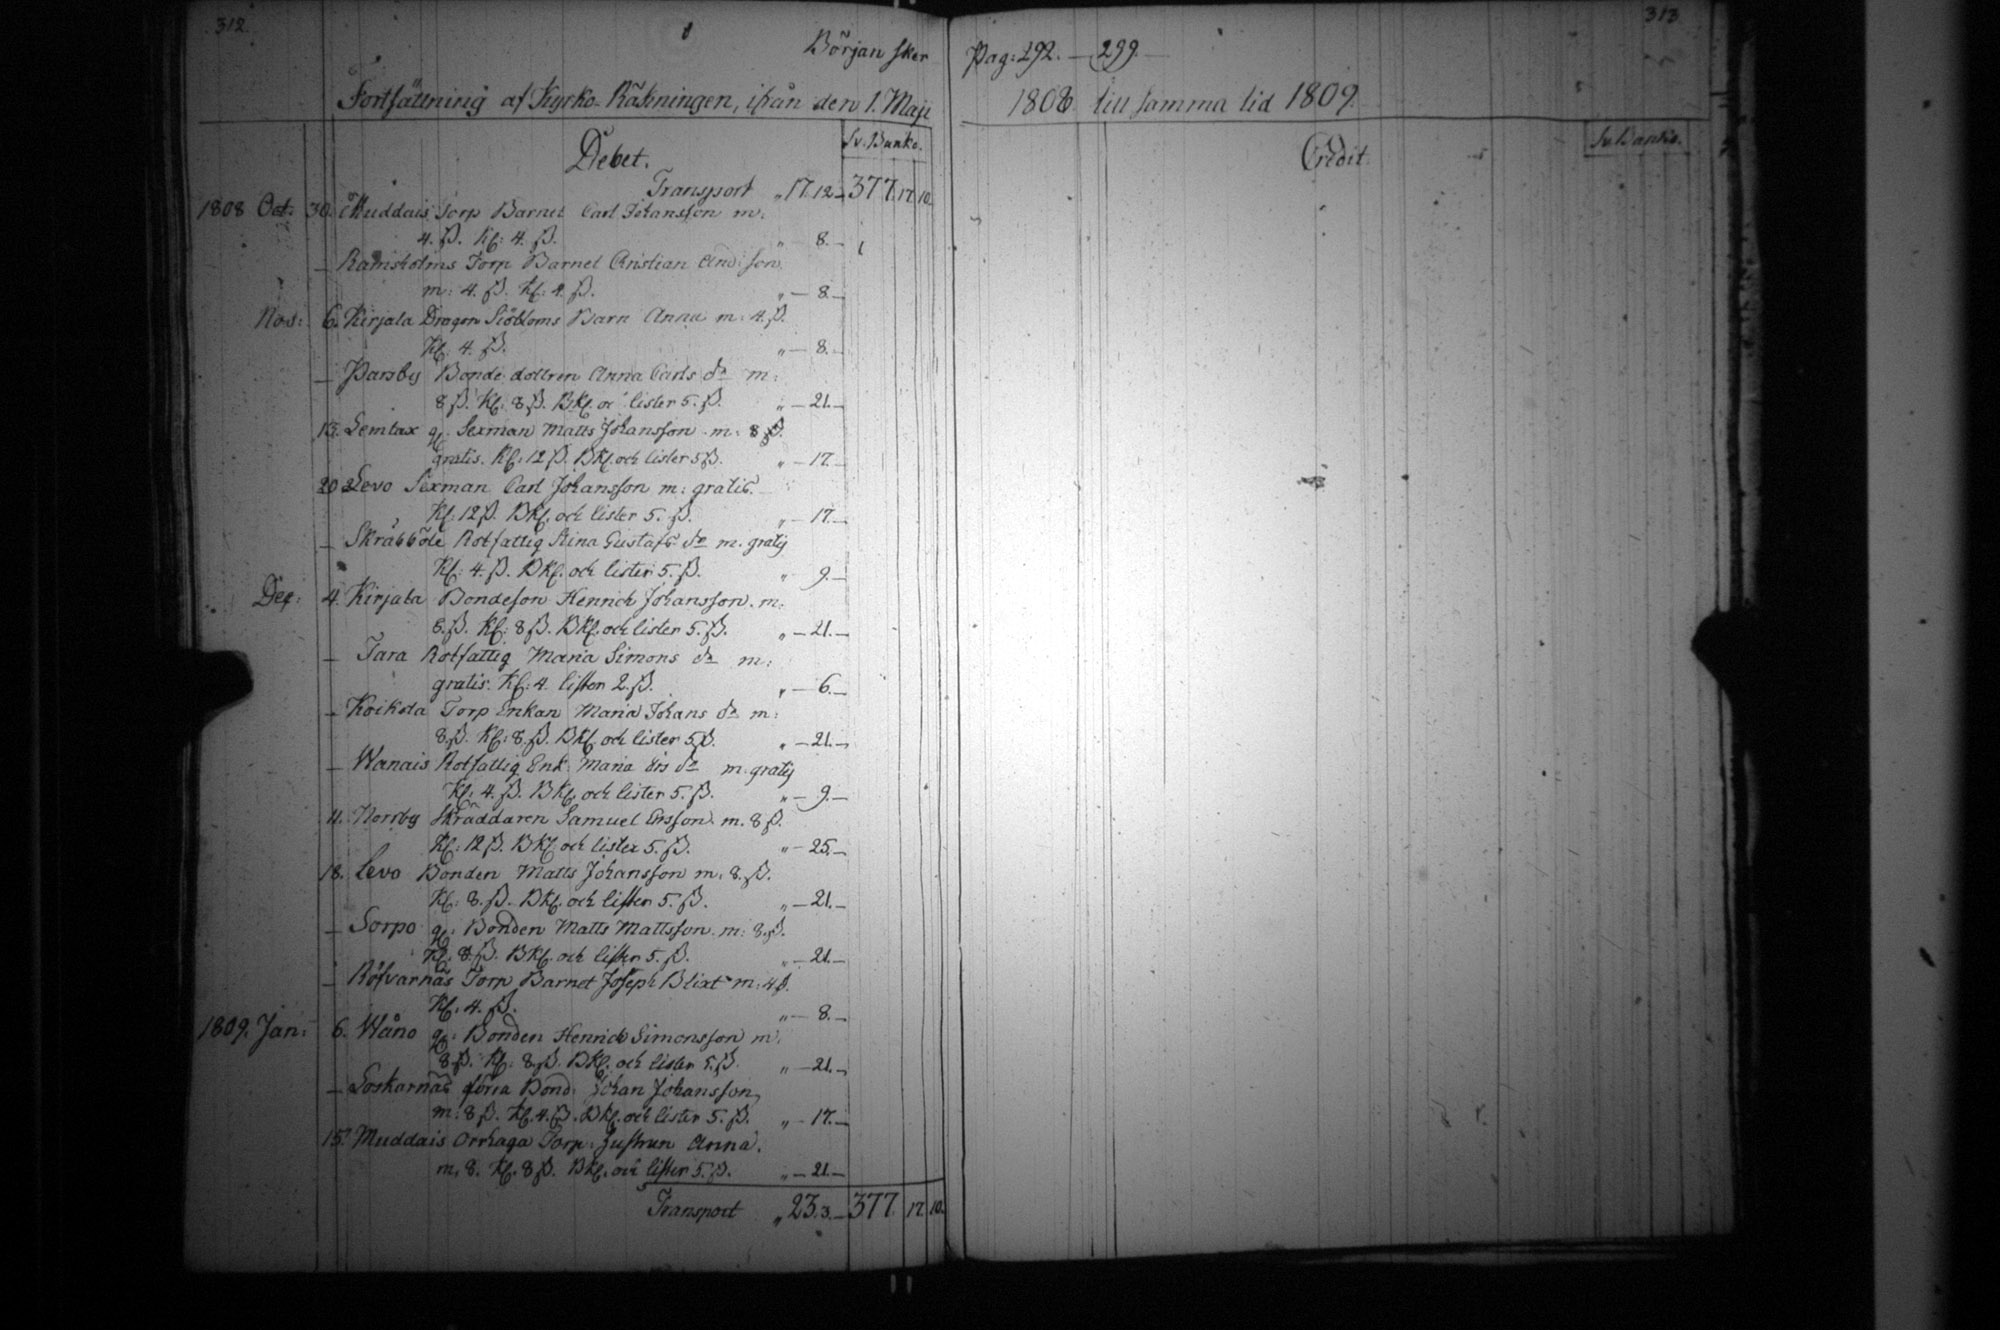 312.
Början sker
Fortsättning af Kyrko-Räkningen, ifrån den 1. Maji
Debet. Sv. Banko.
Transport " 17.12.— 377. 17. 10.
1808 Oct: 30. Muddais Torp Barnet Carl Johansson m:
4. ß. Kl: 4. ß. " — 8. —
— Ramsholms Torp Barnet Cristian And:son
m: 4. ß. Kl: 4. ß. " — 8. —
Nov: 6. Kirjala Dragon Siöbloms Barn Anna m: 4. ß.
Kl: 4. ß. " — 8. —
— Parsby Bonde dottren Anna Carls dr m:
8 ß. Kl: 8 ß. BKl. och lister 5. ß. " — 21. —
13. Lemlax gl: Sexman Matts Johansson m: 8 ß.
gratis. Kl: 12 ß. BKl. och lister 5 ß. " — 17. —
20. Levo Sexman Carl Johansson m: gratis.
Kl: 12 ß. BKl. och lister 5. ß. " — 17. —
— Skråbböle Rotfattig Stina Gustafs dr m. gratis
Kl: 4. ß. BKl. och lister 5. ß. " 9. —
Dec: 4. Kirjala Bondeson Henrich Johansson. m:
8. ß. Kl: 8 ß. BKl. och lister 5. ß. " — 21. —
— Tara Rotfattig Maria Simons dr m:
gratis. Kl: 4. lister 2. ß. " — 6. —
— Koikola Torp Enkan Maria Johans dr m:
8. ß. Kl: 8. ß. BKl. och lister 5 ß. " — 21. —
— Wanais Rotfattig Enk: Maria Ers dr m. gratis
Kl: 4. ß. BKl. och lister 5. ß. " — 9. —
11. Norrby Skräddaren Samuel Ersson. m. 8 ß.
Kl: 12 ß. BKl. och lister 5. ß. " — 25. —
18. Levo Bonden Matts Johansson m: 8. ß.
Kl: 8. ß. BKl. och lister 5. ß. " — 21. —
— Sorpo gl: Bonden Matts Mattsson. m: 8. ß.
Kl: 8 ß. BKl. och lister 5. ß. " — 21. —
— Röfvarnäs Torp Barnet Joseph Blixt m: 4 ß.
Kl: 4. ß. " — 8. —
1809. Jan: 6. Wåno gl: Bonden Henrich Simonsson m.
8 ß. Kl: 8 ß. BKl. och lister 5. ß. " — 21. —
— Loskarnäs Bond: Johan Johansson,
m: 8 ß. Kl. 4. ß. BKl. och lister 5. ß. " — 17. —
15. Muddais Orrhaga Torp: Hustrun Anna.
m. 8. Kl. 8 ß. BKl. och lister 5. ß. " — 21. —
Transport " 23. 3. — 377. 17. 10.
313
Pag: 292. — 299.
1808. till samma tid 1809.
Credit. Sv. Banko.